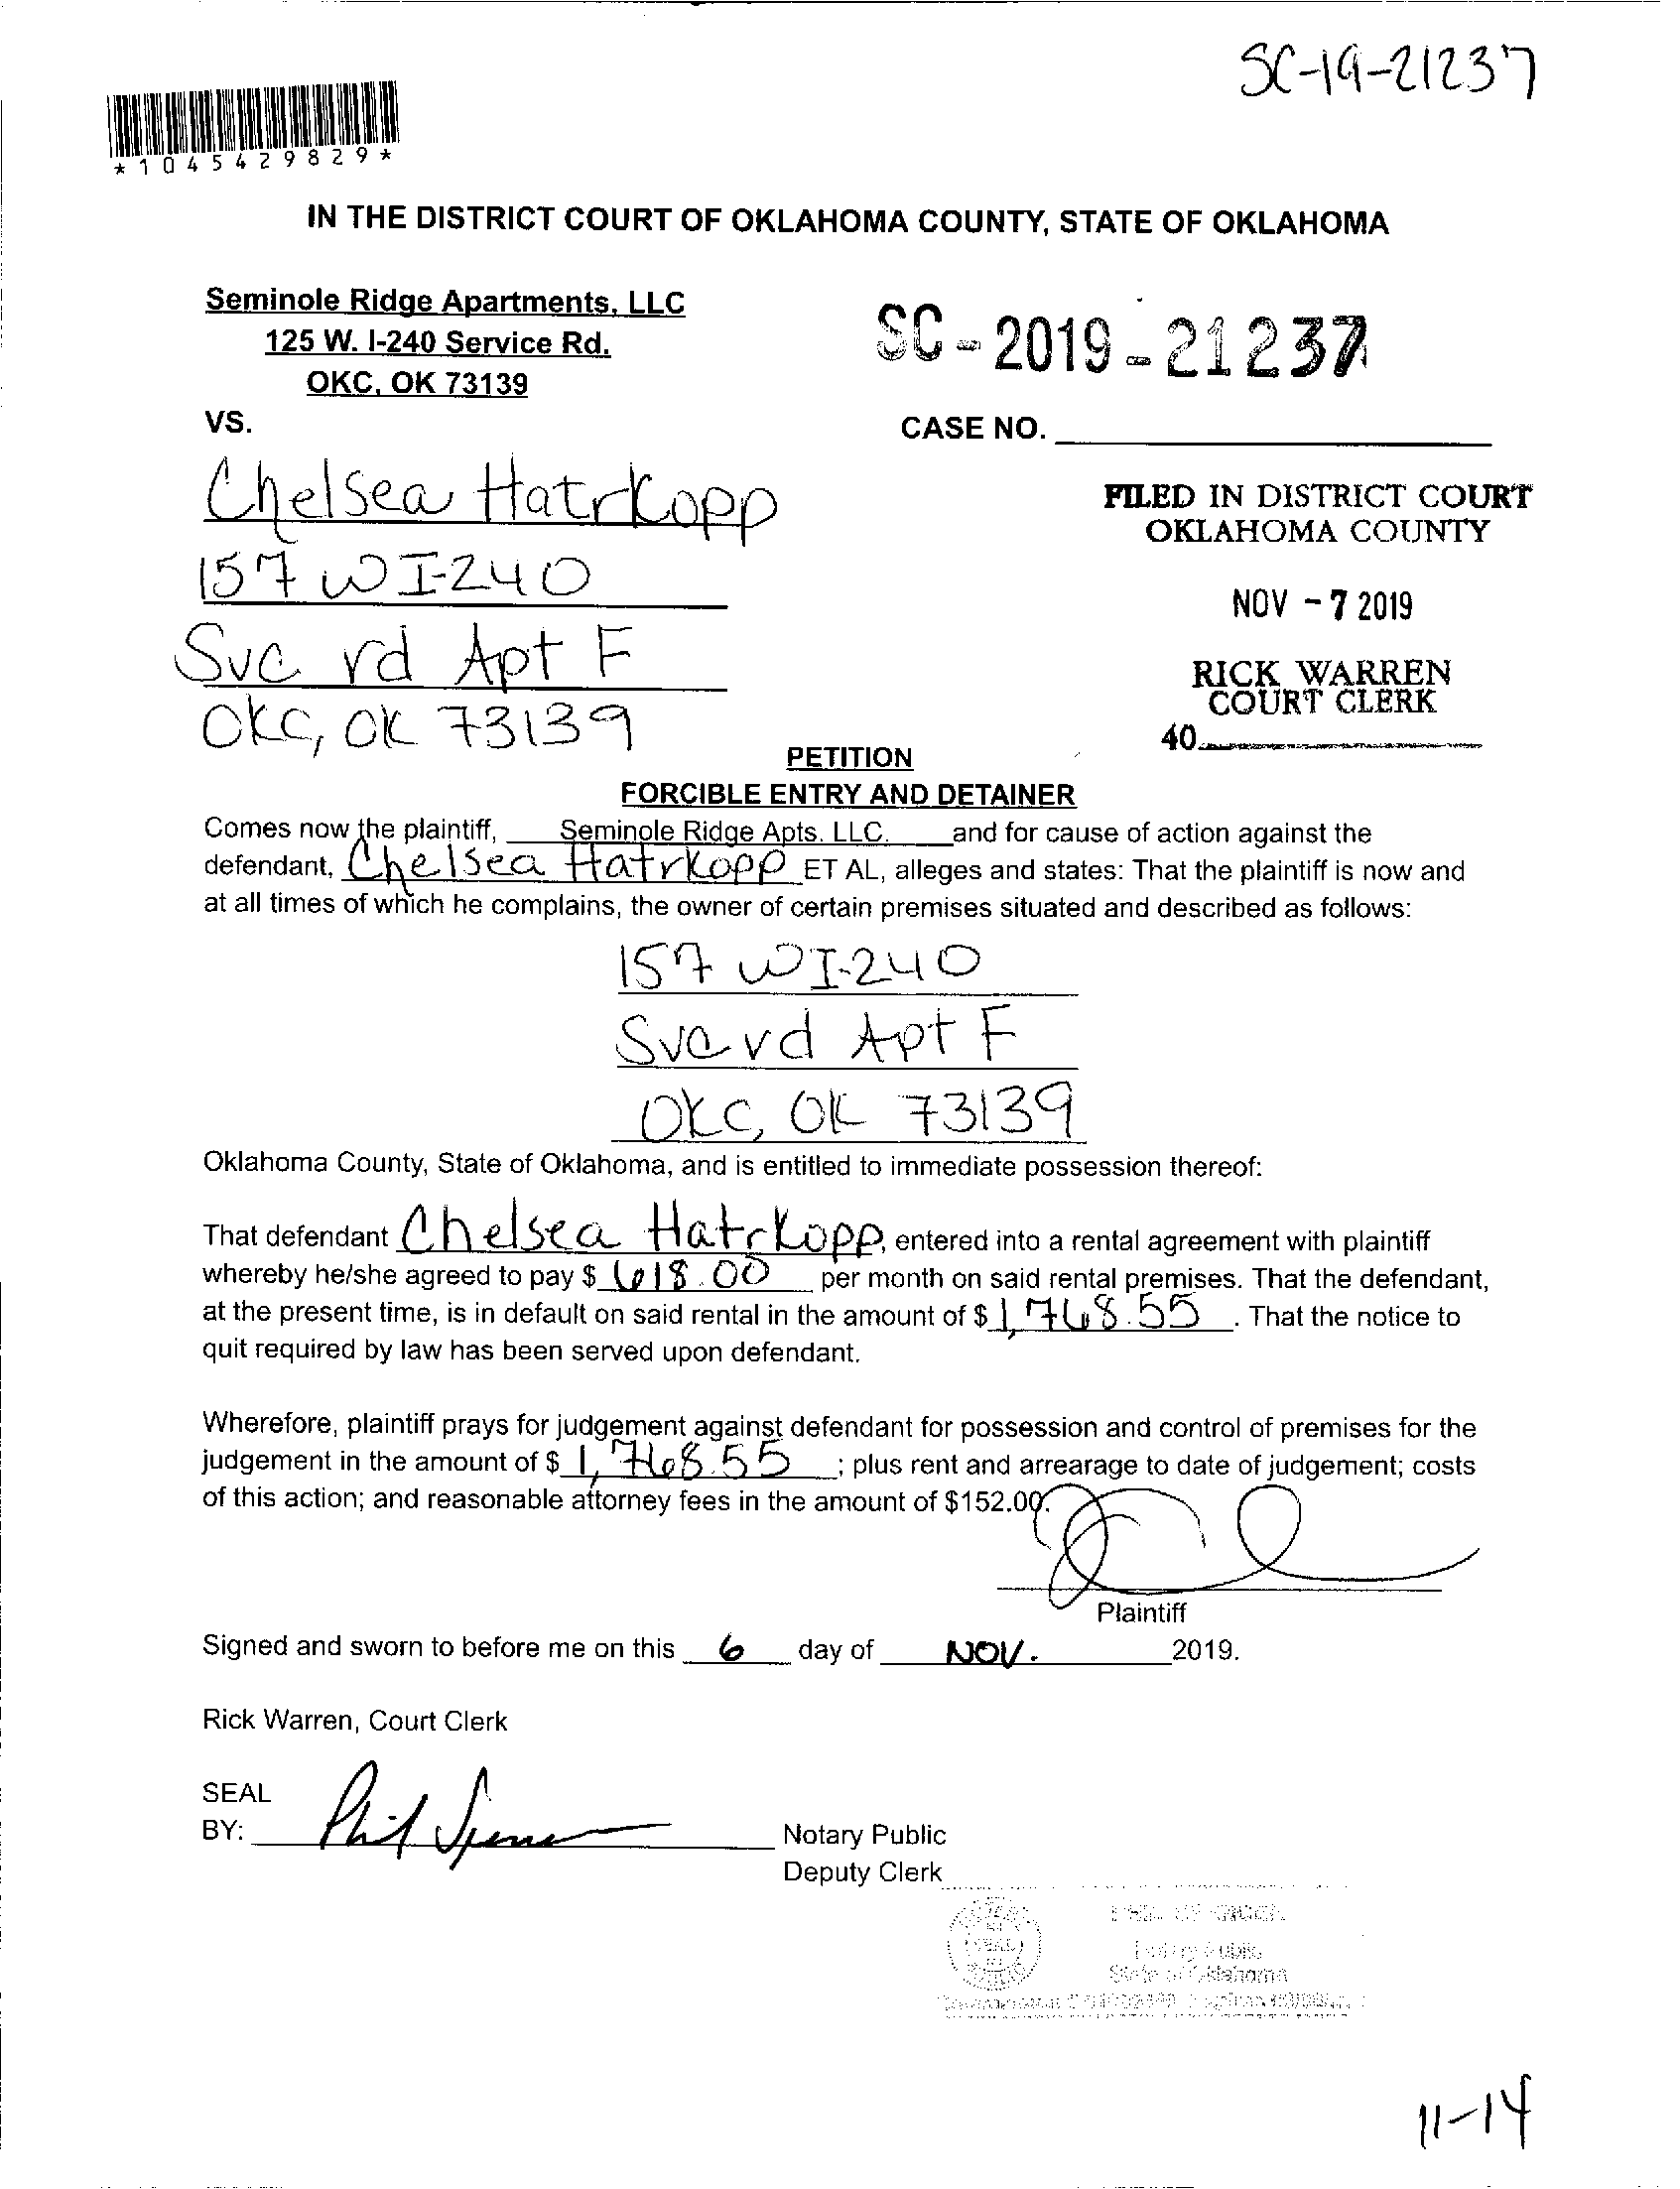 SC-19-21237
*1045429829*
IN THE DISTRICT COURT OF OKLAHOMA COUNTY, STATE OF OKLAHOMA
Seminole Ridge Apartments, LLC
125 W. I-240 Service Rd.
OKC, OK 73139
VS.
SC-2019-21237
CASE NO.
Chelsea Hatrkopp
157 W I-240
Svc rd Apt F
OKC, OK 73139
FILED IN DISTRICT COURT
OKLAHOMA COUNTY
NOV - 7 2019
RICK WARREN
COURT CLERK
40
PETITION
FORCIBLE ENTRY AND DETAINER
Comes now the plaintiff, Seminole Ridge Apts. LLC. and for cause of action against the
defendant, Chelsea Hatrkopp ET AL, alleges and states: That the plaintiff is now and
at all times of which he complains, the owner of certain premises situated and described as follows:
157 W I-240
Svc rd Apt F
OKC, OK 73139
Oklahoma County, State of Oklahoma, and is entitled to immediate possession thereof:
That defendant Chelsea Hatrkopp, entered into a rental agreement with plaintiff
whereby he/she agreed to pay $ 618.00 per month on said rental premises. That the defendant,
at the present time, is in default on said rental in the amount of $ 1,768.55. That the notice to
quit required by law has been served upon defendant.
Wherefore, plaintiff prays for judgement against defendant for possession and control of premises for the
judgement in the amount of $ 1,768.55; plus rent and arrearage to date of judgement; costs
of this action; and reasonable attorney fees in the amount of $152.00.
Plaintiff
Signed and sworn to before me on this 6 day of NOV. 2019.
Rick Warren, Court Clerk
SEAL
BY: Phil
Notary Public
Deputy Clerk
Notary Public
State of Oklahoma
11-14